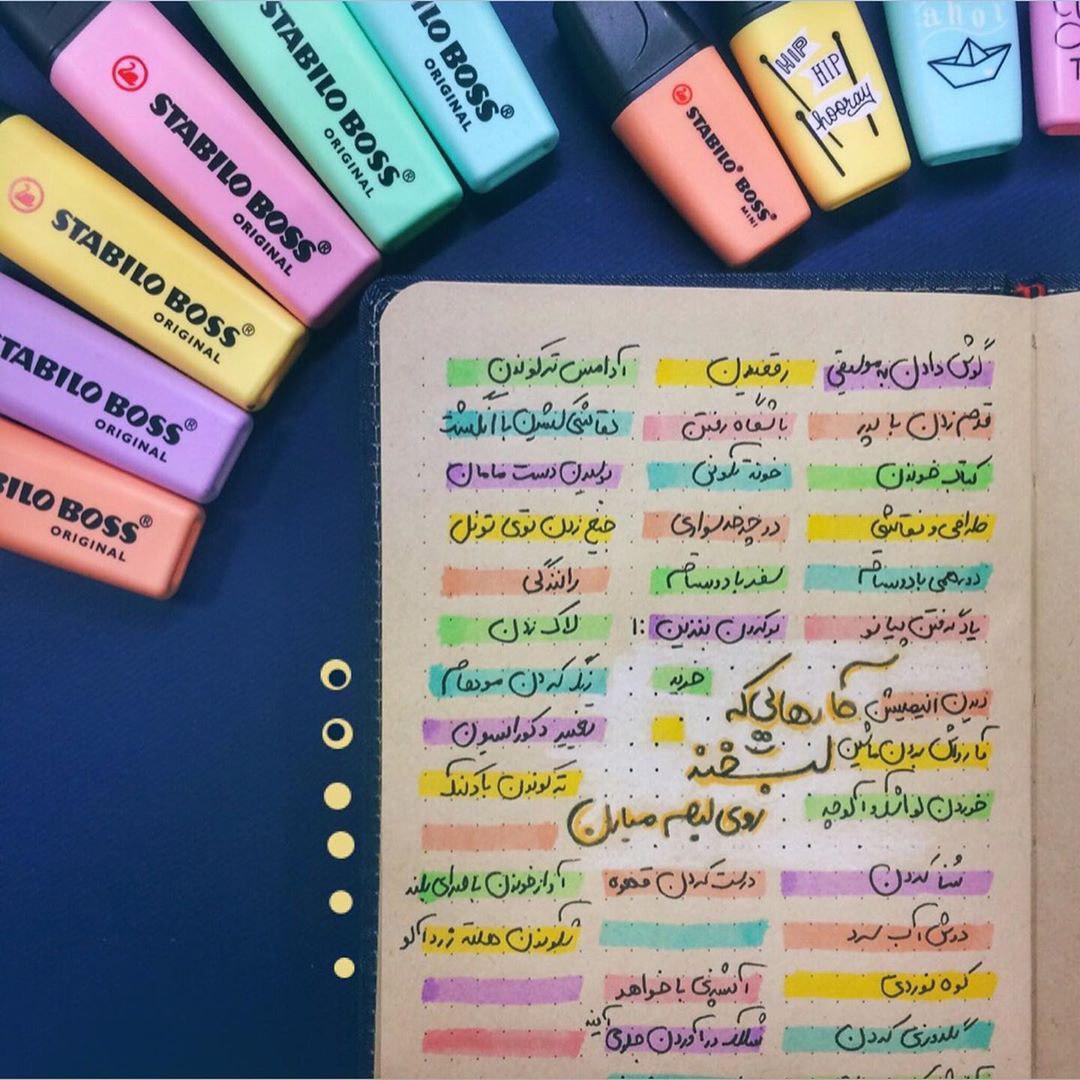 STABILO BOSS®
ORIGINAL
STABILO BOSS®
ORIGINAL
STABILO BOSS®
ORIGINAL
STABILO BOSS®
ORIGINAL
STABILO BOSS®
ORIGINAL
BILO BOSS®
ORIGINAL
STABILO® BOSS®
MINI
HIP
HIP
hooray
ahoi
گوش دادن به موسیقی
رقصیدن
آدامس ترکوندن
قدم زدن با پدر
باشگاه رفتن
نقاشی کشیدن با انگشت
کتاب خوندن
خونه تکونی
بوسیدن دست مامان
طراحی و نقاشی
دوچرخه سواری
جیغ زدن توی تونل
دورهمی با دوستام
سفر با دوستام
رانندگی
یاد گرفتن پیانو
بو کردن بنزین :۱
لاک زدن
خرید
رنگ کردن موهام
کارهایی که
لبخند
روی لبهم میارن
دیدن انیمیشن
تغییر دکوراسیون
کارواش بردن ماشین
ترکوندن بادکنک
خوردن لواشک و آلوچه
شنا کردن
درست کردن قهوه
آواز خوندن با صدای بلند
دوش آب سرد
شکوندن هسته زردآلو
کوه نوردی
آشپزی با خواهر
گلدوزی کردن
شکلک درآوردن جلوی آینه